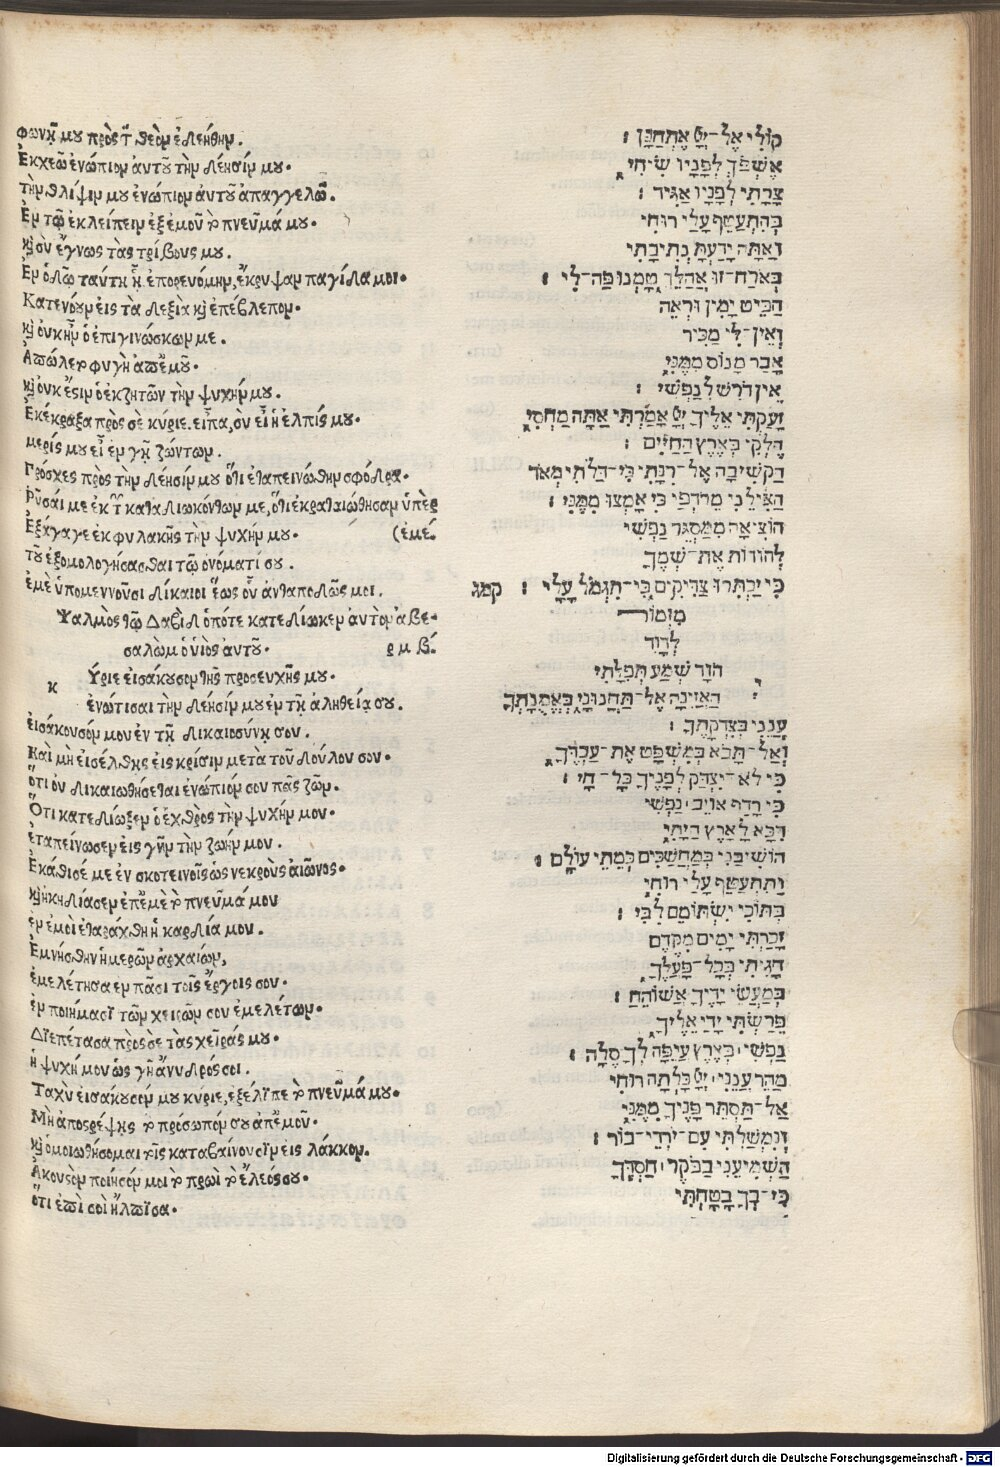 φωνῇ μου πρὸς τὸν θεὸν ἐδεήθην.
Ἐκχεῶ ἐνώπιον ἀυτοῦ τὴν δέησίν μου.
τὴν θλίψιν μου ἐνώπιον ἀυτοῦ ἀπαγγελῶ.
Ἐν τῷ ἐκλείπειν ἐξ ἐμοῦ τὸ πνεῦμά μου.
καὶ σὺ ἔγνως τὰς τρίβους μου.
Ἐν ὁδῷ ταύτῃ ᾗ ἐπορευόμην, ἔκρυψαν παγίδα μοι.
Κατενόουν εἰς τὰ δεξιὰ καὶ ἐπέβλεπον.
καὶ ὀυκ ἦν ὁ ἐπιγινώσκων με.
Ἀπώλετο φυγὴ ἀπ᾽ ἐμοῦ.
καὶ ὀυκ ἔστιν ὁ ἐκζητῶν τὴν ψυχήν μου.
Ἐκέκραξα πρὸς σὲ κύριε. εἶπα, σὺ εἶ ἡ ἐλπίς μου.
μερίς μου εἶ ἐν γῇ ζώντων.
Πρόσχες πρὸς τὴν δέησίν μου ὅτι ἐταπεινώθην σφόδρα.
Ῥῦσαί με ἐκ τῶν καταδιωκόντων με, ὅτι ἐκραταιώθησαν ὑπὲρ
Ἐξάγαγε ἐκ φυλακῆς τὴν ψυχήν μου. (ἐμέ.
τοῦ ἐξομολογήσασθαι τῷ ὀνόματί σου.
ἐμὲ ὑπομεννοῦσι δίκαιοι ἕως οὗ ἀνταποδῶς μοι.
Ψαλμὸς τῷ Δαβὶδ ὁπότε κατεδίωκεν ἀυτὸν ἀβε-
σαλὼμ ὁ ὑιὸς ἀυτοῦ. ρ μ β.
κ Ύριε εἰσάκουσον τῆς προσευχῆς μου.
ἐνώτισαι τὴν δέησίν μου ἐν τῇ ἀληθείᾳ σου.
εἰσάκουσόν μου ἐν τῇ δικαιοσύνῃ σου.
Καὶ μὴ εἰσέλθῃς εἰς κρίσιν μετὰ τοῦ δούλου σου.
ὅτι ὀυ δικαιωθήσεται ἐνώπιόν σου πᾶς ζῶν.
Ὅτι κατεδίωξεν ὁ ἐχθρὸς τὴν ψυχήν μου.
ἐταπείνωσεν εἰς γῆν τὴν ζωήν μου.
Ἐκάθισέ με ἐν σκοτεινοῖς ὡς νεκροὺς αἰῶνος.
καὶ ἠκηδίασεν ἐπ᾽ ἐμὲ τὸ πνεῦμά μου
ἐν ἐμοὶ ἐταράχθη ἡ καρδία μου.
Ἐμνήσθην ἡμερῶν ἀρχαίων,
ἐμελέτησα ἐν πᾶσι τοῖς ἔργοις σου.
ἐν ποιήμασι τῶν χειρῶν σου ἐμελέτων.
Διεπέτασα πρὸς σὲ τὰς χεῖράς μου.
ἡ ψυχή μου ὡς γῆ ἄνυδρός σοι.
Ταχὺ εἰσάκουσόν μου κύριε, ἐξέλιπε τὸ πνεῦμά μου.
Μὴ ἀποστρέψῃς τὸ πρόσωπόν σου ἀπ᾽ ἐμοῦ.
καὶ ὁμοιωθήσομαι τοῖς καταβαίνουσιν εἰς λάκκον.
Ἀκουστὸν ποίησόν μοι τὸ πρωῒ τὸ ἔλεός σου.
ὅτι ἐπὶ σοὶ ἤλπισα.
קוֹלִי אֶל־יְיָ אֶתְחַנָּן׃
אֶשְׁפֹּךְ לְפָנָיו שִׂיחִי
צָרָתִי לְפָנָיו אַגִּיד׃
בְּהִתְעַטֵּף עָלַי רוּחִי
וְאַתָּה יָדַעְתָּ נְתִיבָתִי
בְּאֹרַח־זוּ אֲהַלֵּךְ טָמְנוּ פַּה־לִי׃
הַבֵּיט יָמִין וּרְאֵה
וְאֵין־לִי מַכִּיר
אָבַד מָנוֹס מִמֶּנִּי
אֵין דֹּרֵשׁ לְנַפְשִׁי׃
זָעַקְתִּי אֵלֶיךָ יְיָ אָמַרְתִּי אַתָּה מַחְסִי
חֶלְקִי בְּאֶרֶץ הַחַיִּים׃
הַקְשִׁיבָה אֶל־רִנָּתִי כִּי־דַלֹּתִי מְאֹד
הַצִּילֵנִי מֵרֹדְפַי כִּי אָמְצוּ מִמֶּנִּי׃
הוֹצִיאָה מִמַּסְגֵּר נַפְשִׁי
לְהוֹדוֹת אֶת־שְׁמֶךָ
כִּי יַכְתִּרוּ צַדִּיקִים כִּי־תִגְמֹל עָלָי׃ קמג
מִזְמוֹר
לְדָוִד
יְ הוָה שְׁמַע תְּפִלָּתִי
הַאֲזִינָה אֶל־תַּחֲנוּנַי בֶּאֱמֻנָתְךָ
עֲנֵנִי בְּצִדְקָתֶךָ׃
וְאַל־תָּבֹא בְמִשְׁפָּט אֶת־עַבְדֶּךָ
כִּי לֹא־יִצְדַּק לְפָנֶיךָ כָּל־חָי׃
כִּי רָדַף אוֹיֵב נַפְשִׁי
דִּכָּא לָאָרֶץ חַיָּתִי
הוֹשִׁיבַנִי בְּמַחֲשַׁכִּים כְּמֵתֵי עוֹלָם׃
וַתִּתְעַטֵּף עָלַי רוּחִי
בְּתוֹכִי יִשְׁתּוֹמֵם לִבִּי׃
זָכַרְתִּי יָמִים מִקֶּדֶם
הָגִיתִי בְּכָל־פָּעֳלֶךָ
בְּמַעֲשֵׂי יָדֶיךָ אֲשׂוֹחֵחַ׃
פֵּרַשְׂתִּי יָדַי אֵלֶיךָ
נַפְשִׁי כְּאֶרֶץ עֲיֵפָה לְךָ סֶלָה׃
מַהֵר עֲנֵנִי יְיָ כָּלְתָה רוּחִי
אַל־תַּסְתֵּר פָּנֶיךָ מִמֶּנִּי
וְנִמְשַׁלְתִּי עִם־יֹרְדֵי־בוֹר׃
הַשְׁמִיעֵנִי בַבֹּקֶר חַסְדֶּךָ
כִּי־בְךָ בָטָחְתִּי
Digitalisierung gefördert durch die Deutsche Forschungsgemeinschaft - DFG